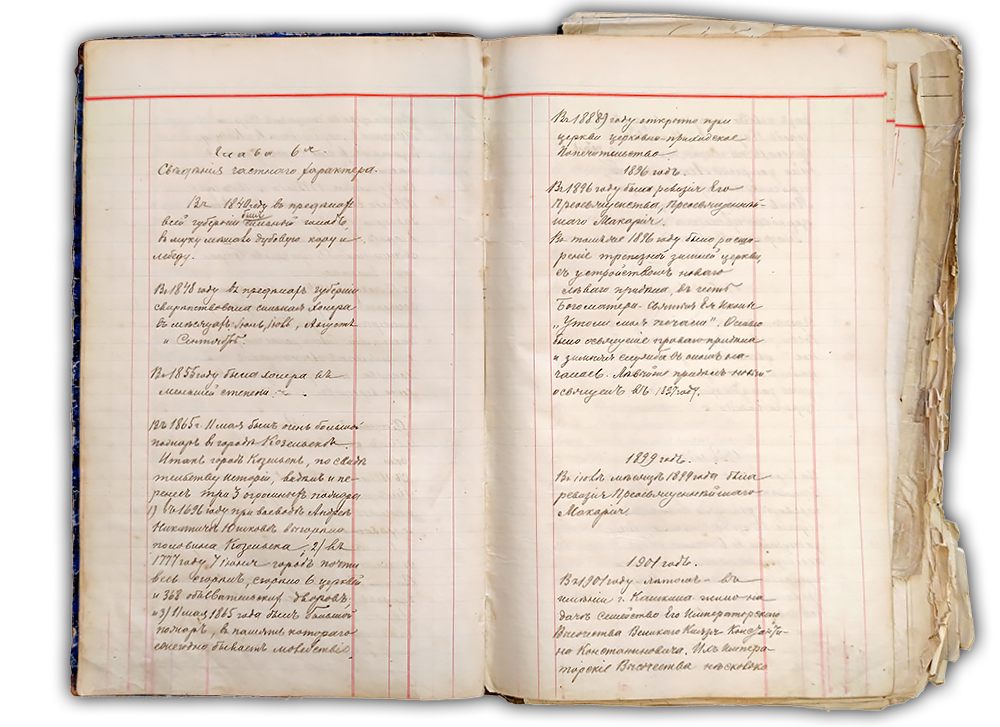 Глава 6я.
Сведения частного характера.
Въ 1840 году въ предѣлахъ
всей губернiи былъ сильный голодъ,
въ муку мѣшали дубовую кору и
лебеду.
Въ 1848 году въ предѣлахъ губернiи
свирѣпствовала сильная холера
въ мѣсяцахъ Iюнѣ, Iюлѣ, Августѣ
и Сентябрѣ.
Въ 1855 году была холера въ
меньшей степени.
Въ 1865 г. 11 мая былъ очень большой
пожаръ въ городѣ Козельскѣ.
Итакъ городъ Козельскъ, по свидѣ
тельству исторiи, видѣлъ и пе-
ренесъ три 3 огромныхъ пожара
1) въ 1696 году при воеводѣ Андреѣ
Никитичѣ Юшковѣ выгорѣла
половина Козельска. 2) въ
1777 году 7 iюля городъ почти
весь сгорѣлъ, сгорѣло 6 церквей
и 368 обывательскихъ дворовъ.
и 3) 11 мая 1865 года былъ большой
пожаръ, въ память котораго
ежегодно бываетъ молебствiе.
Въ 1889 году открыто при
церкви церковно-приходское
Попечительство.
1896 годъ.
Въ 1896 году была ревизiя Его
Преосвященства, Преосвященнѣй-
шаго Макарiя.
Въ томъ же 1896 году было расши-
ренiе трапезной зимней церкви,
съ устройствомъ новаго
лѣваго придѣла, въ честь
Богоматери
"Утоли моя печали". Осенью
было освященiе праваго придѣла
и зимняя служба въ ономъ на-
чалась. Лѣвый же придѣлъ
освященъ въ 1897 году.
1899 годъ.
Въ iюлѣ мѣсяцѣ 1899 года была
ревизiя Преосвященнѣйшаго
Макарiя
1901 годъ.
Въ 1901 году лѣтомъ въ
имѣнiи г. Кашкина жило на
дачѣ семейство Его Императорскаго
Высочества Великаго Князя Константи-
на Константиновича. Ихъ Импера-
торскiе Высочества нѣсколько